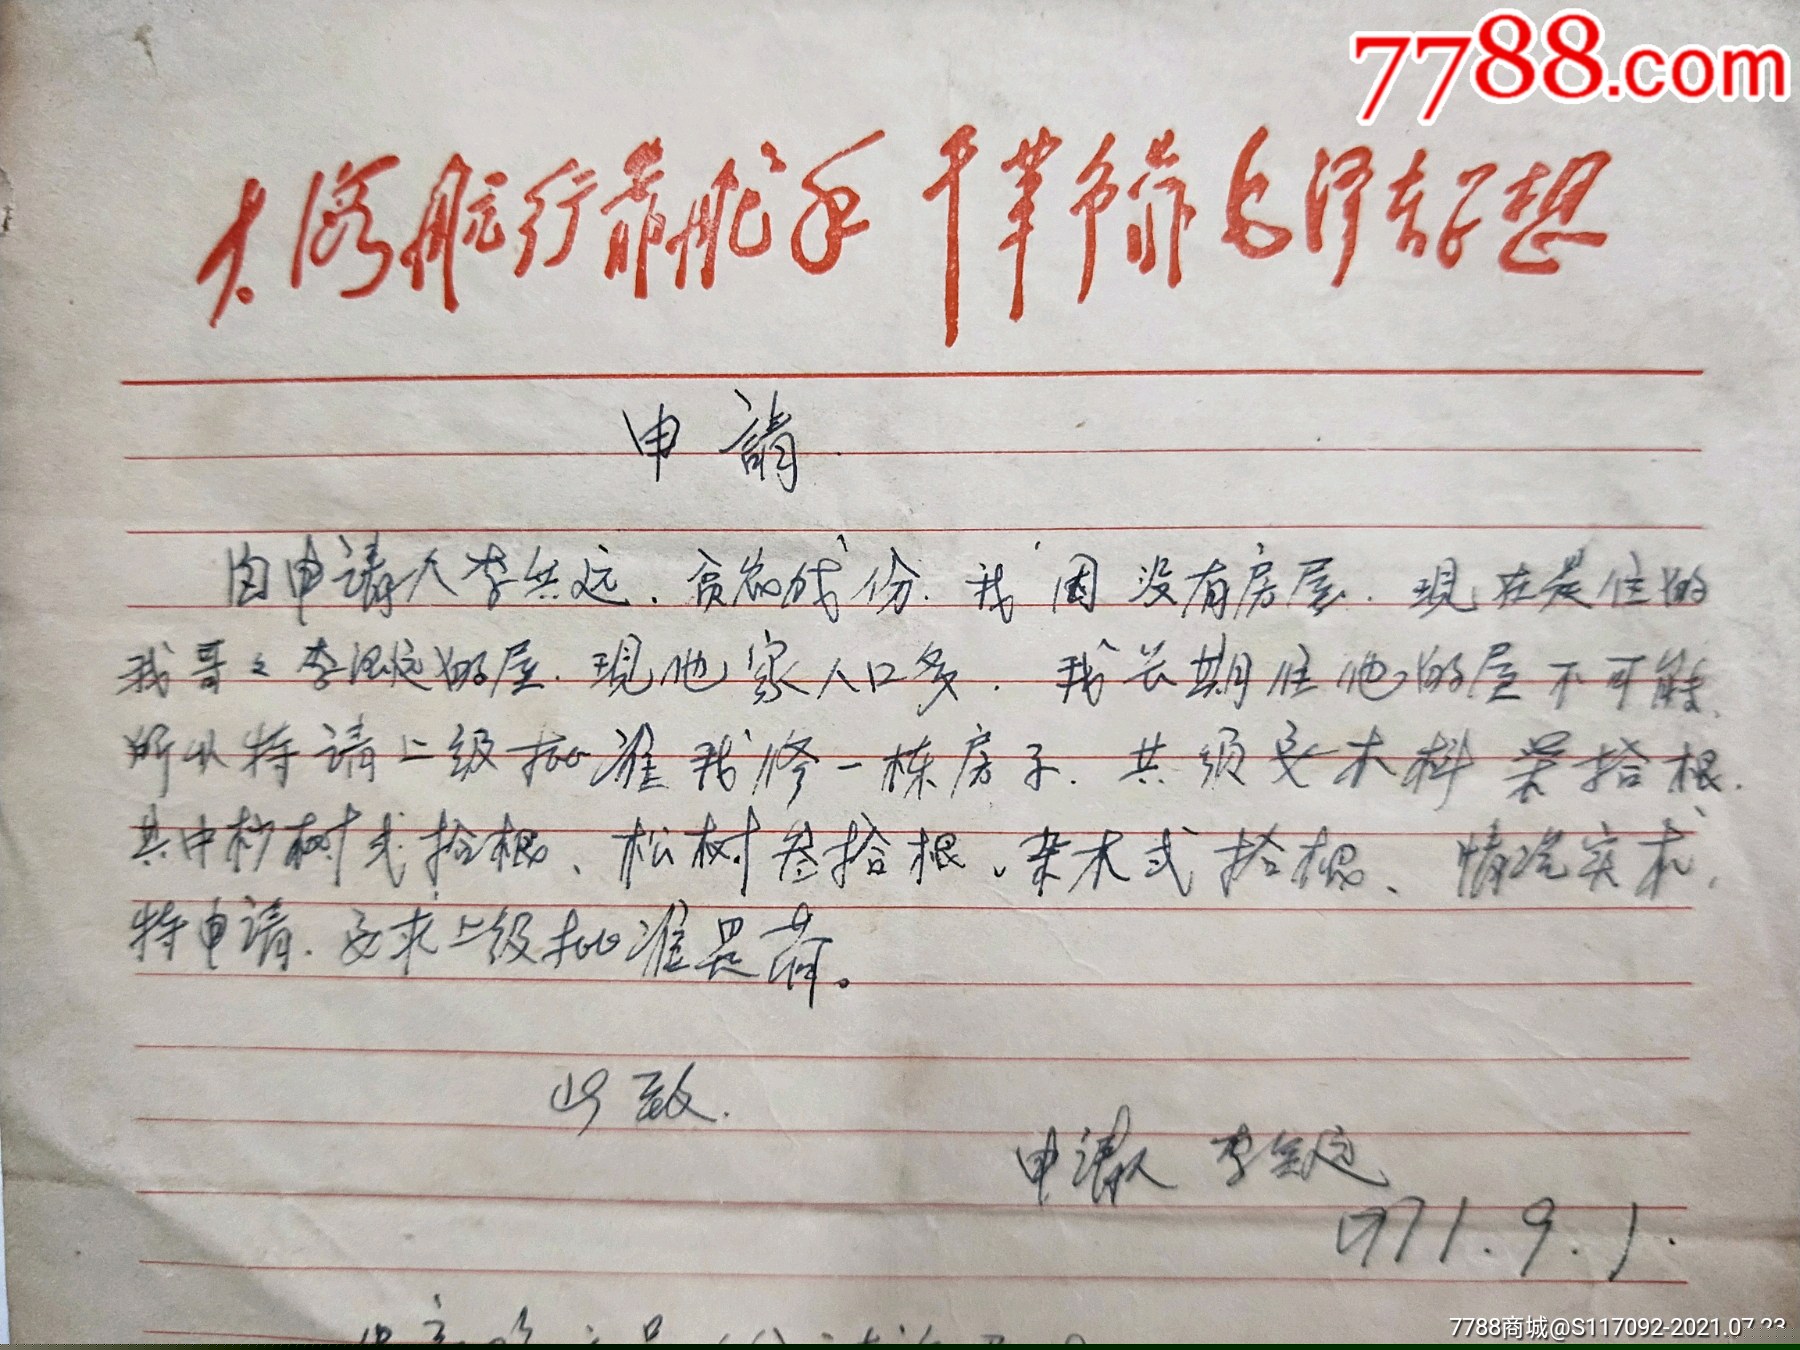 7788.com
大海航行靠舵手 干革命靠毛泽东思想
申請
自申请人李兵远、贫农成份.我因没有房屋.現在是住的
我哥々李洪远的屋.現他家人口多.我长期住他的屋不可能、
所以特请上级批准我修一栋房子.共须要木料柒拾根.
其中杉树弍拾根、松树叁拾根、杂木弍拾根、情况实求,
特申请.要求上级批准是荷。
此致.
申请人 李兵远
1971.9.1.
7788商城@S117092-2021.07.23